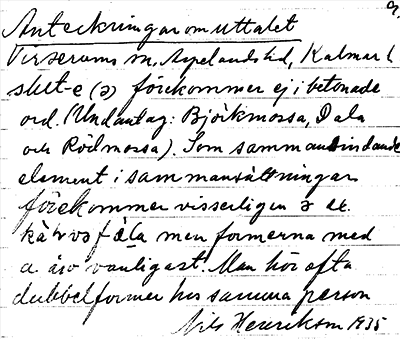 9.
Anteckningar om uttalet
Virserums sn, Aspelands hd, Kalmar l
slut-e (ə) förekommer ej i betonade
ord. (Undantag: Björkmossa, Dala
och Rödmossa). Som sammanbindande
element i sammansättningar
förekommer visserligen ə ex.
men formerna med
a äro vanligast. Man hör ofta
dubbelformer hos samma person
Nils Henrikson 1935